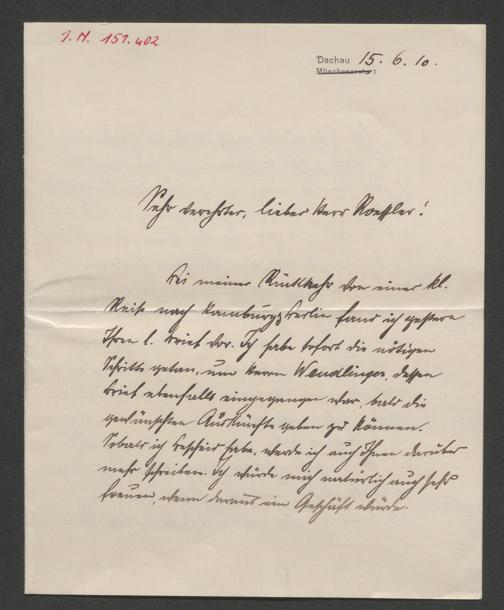 I. N. 151.402
Dachau 15. 6. 10.
Münchenerstr. 1
Sehr verehrter, lieber Herr Roessler!
Bei meiner Rückkehr von einer kl.
Reise nach Hamburg, Berlin fand ich gestern
Ihren l. Brief vor. Ich habe sofort die nötigen
Schritte getan, um Herrn Wendlinger, dessen
Brief ebenfalls eingegangen war, bald die
gewünschten Auskünfte geben zu können.
Sobald ich Bescheid habe, werde ich auch Ihnen darüber
mehr schreiben. Ich würde mich natürlich auch sehr
freuen, wenn daraus ein Geschäft würde.